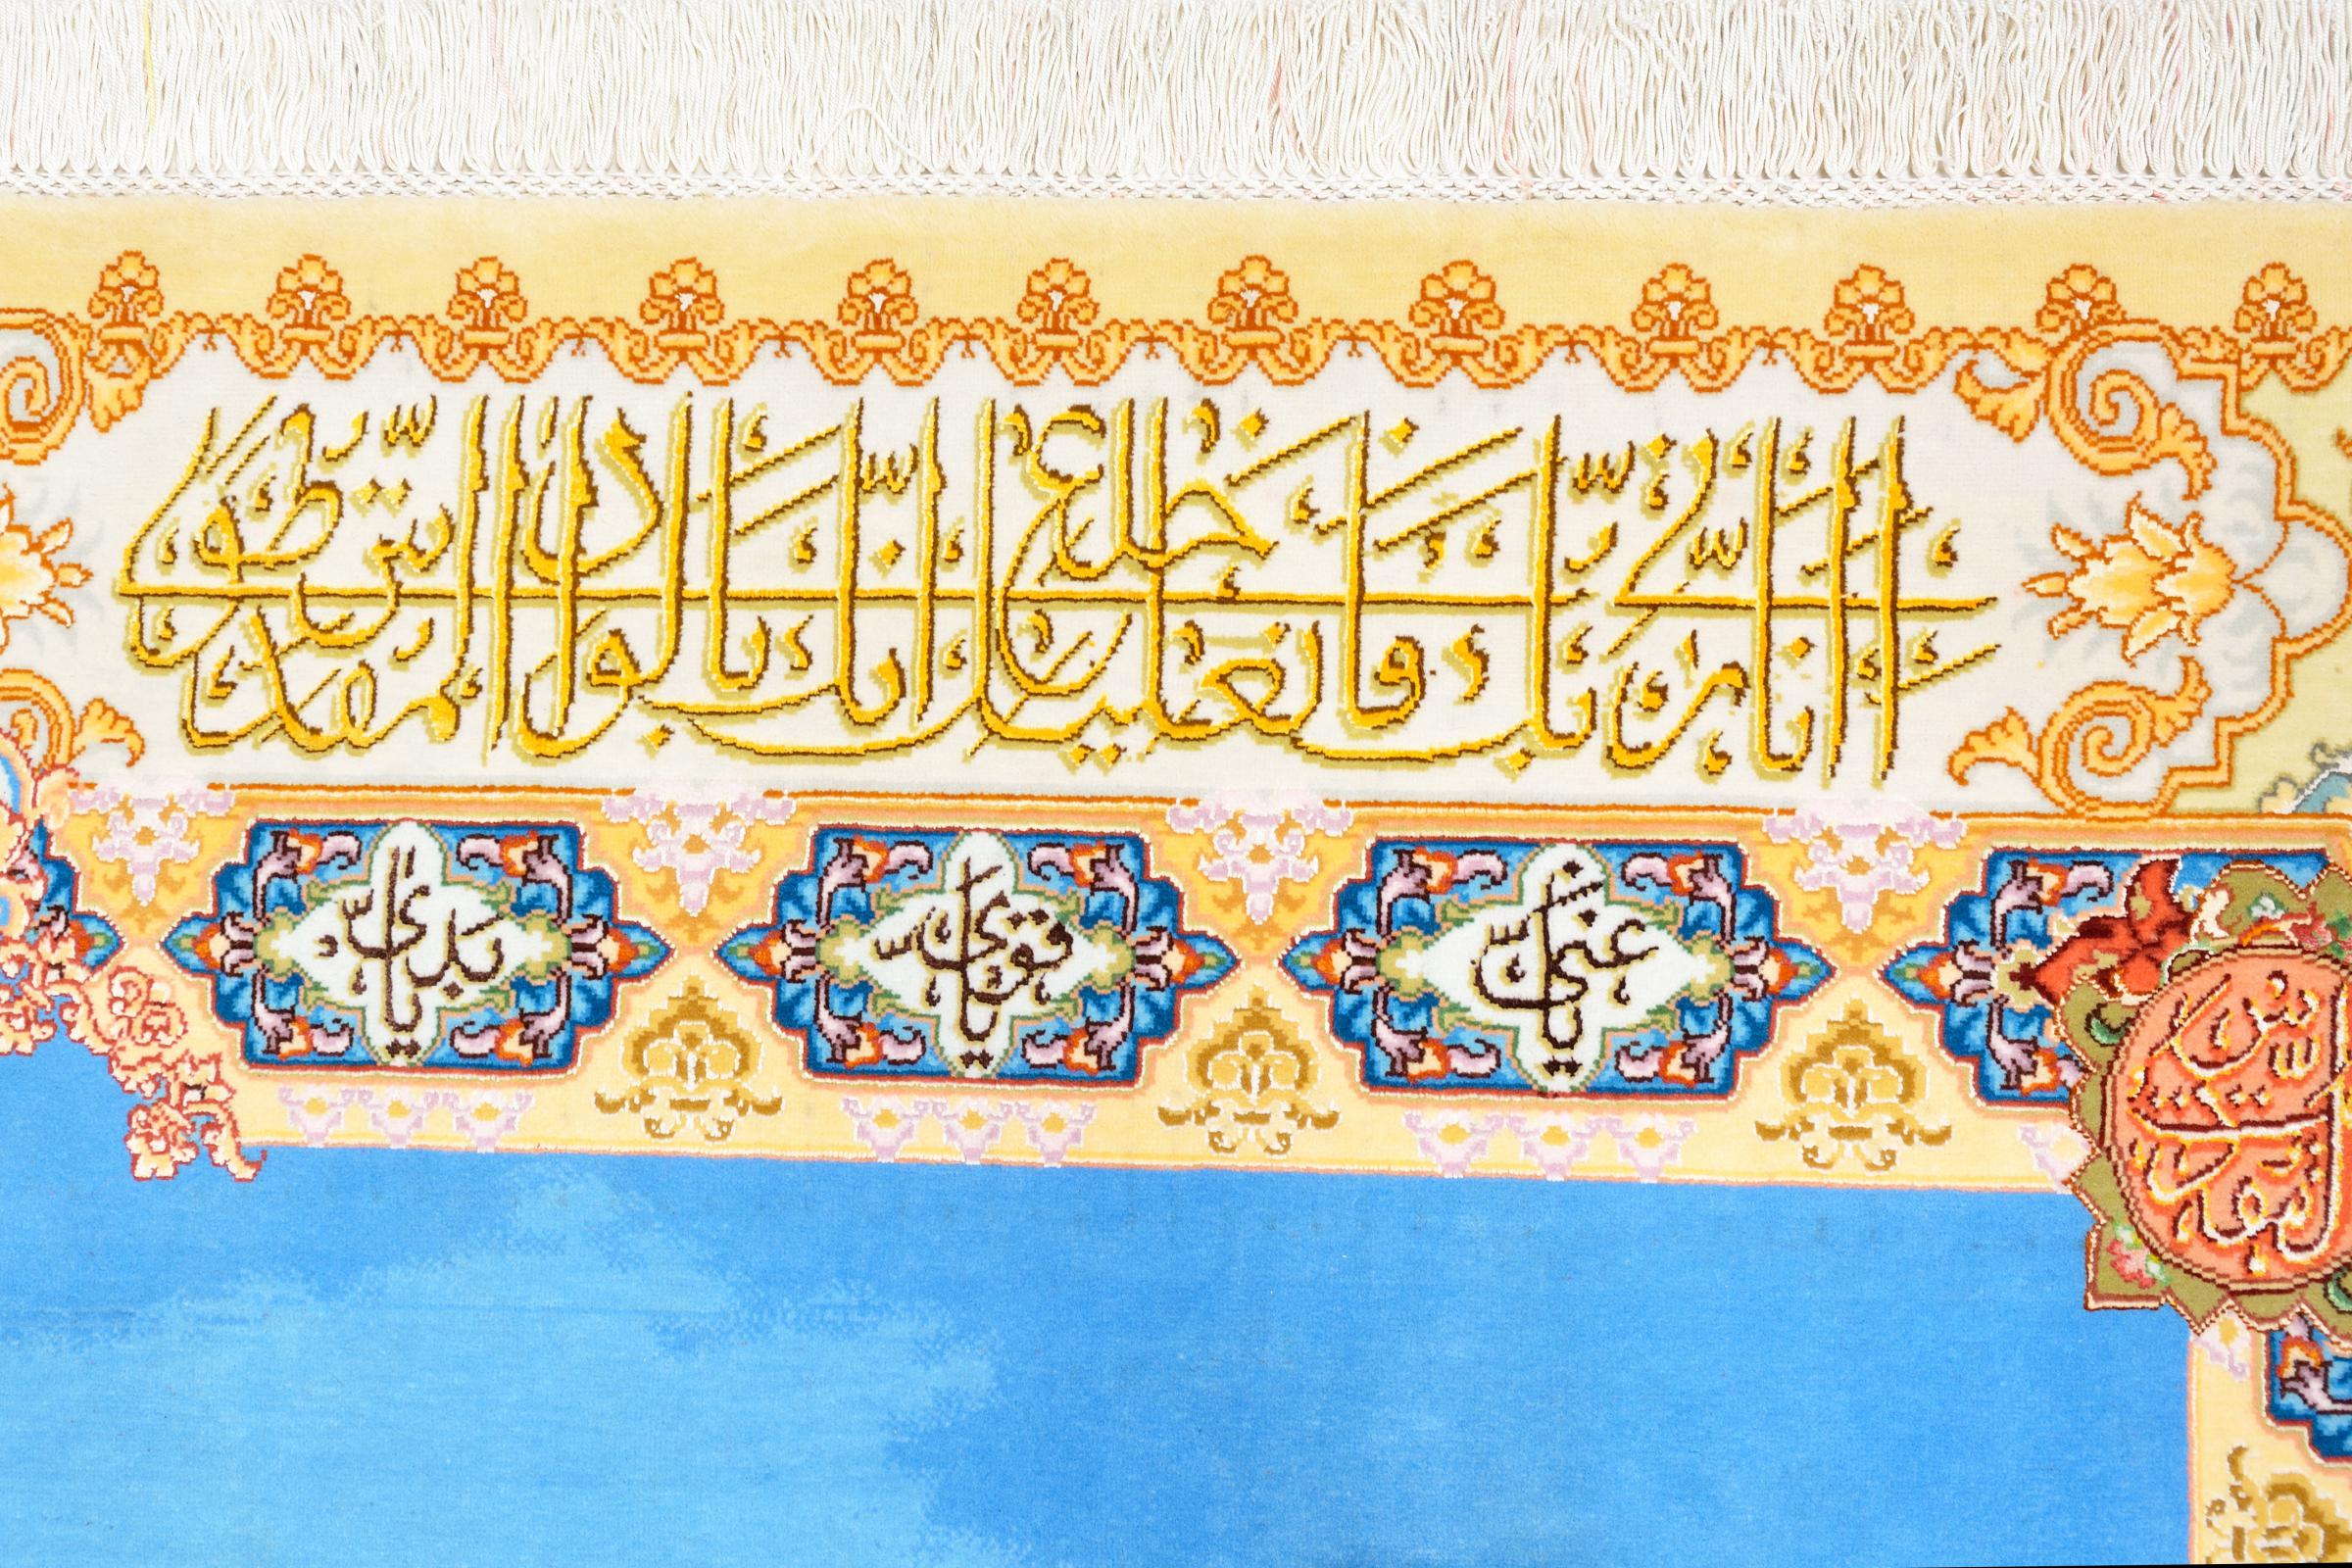 إني أنا ربك فاخلع نعليك إنك بالواد المقدس طوى
يا غني
يا قوي
يا بدي